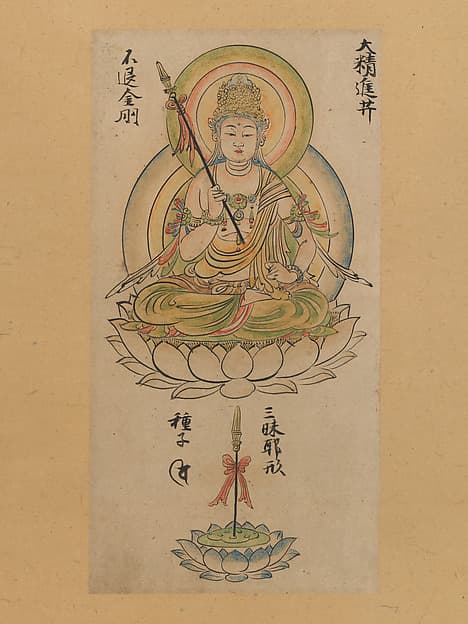 大精進井
不退金剛
三昧耶形
種子